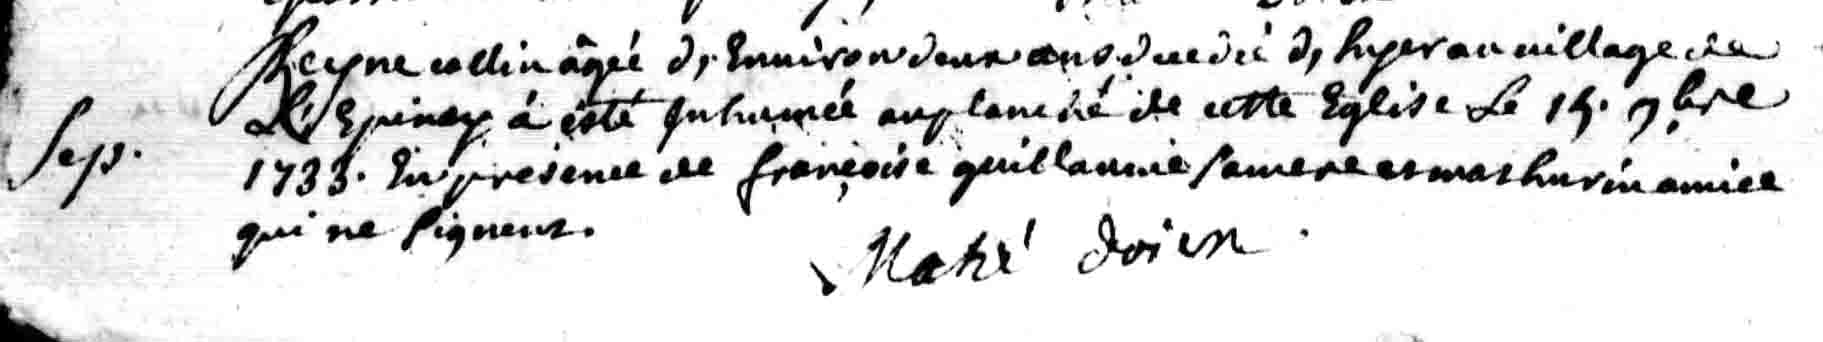 Reyne collin âgéé d, Environ deux ans decedéé d, hyer au village de
L'Epinay á esté Inhuméé au placitré de cette Eglise Le 15. 9bre
Sep.
1733. En présence de françoise guillaume sa mere et mathurin amice
qui ne signent.
Mahé doien